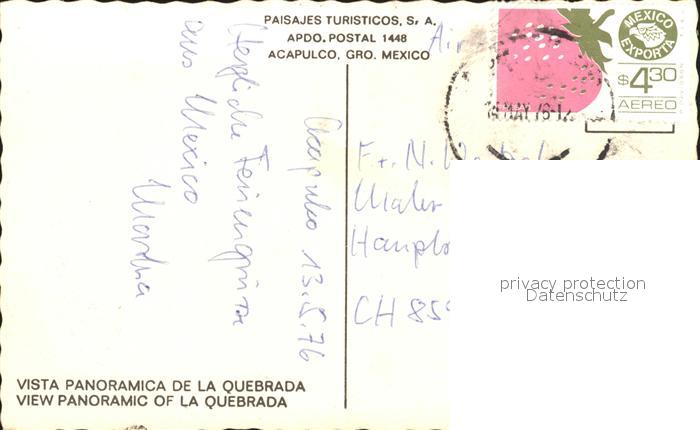 PAISAJES TURISTICOS, S. A.
APDO. POSTAL 1448
ACAPULCO, GRO. MEXICO
MEXICO
EXPORTA
$4.30
AEREO
MAY 76
Acapulco 13.5.76
Herzliche Feriengrüsse
aus Mexico
Fr. N.
Maler
CH 859
privacy protection
Datenschutz
VISTA PANORAMICA DE LA QUEBRADA
VIEW PANORAMIC OF LA QUEBRADA